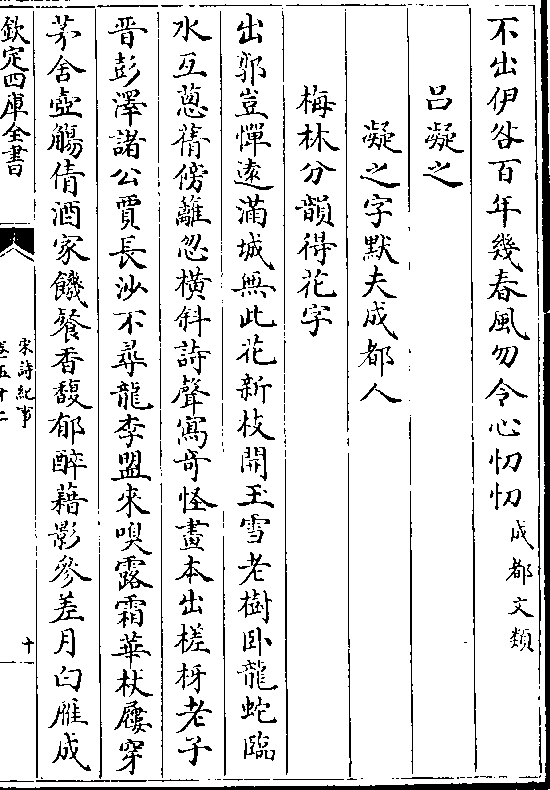 不出伊咎百年幾春風勿令心忉忉成都文類
呂凝之
凝之字默夫成都人
梅林分韻得花字
出郭豈憚遠滿城無此花新枝開玉雪老樹卧龍蛇臨
水互蔥蒨傍籬忽橫斜詩聲寫奇怪畫本出槎枒老子
晋彭澤諸公賈長沙不尋龍李盟來嗅露霜華杖屨穿
茅舍壺觴倩酒家饑餐香馥郁醉藉影參差月白雁成
欽定四庫全書
宋詩紀事
卷五十二
十